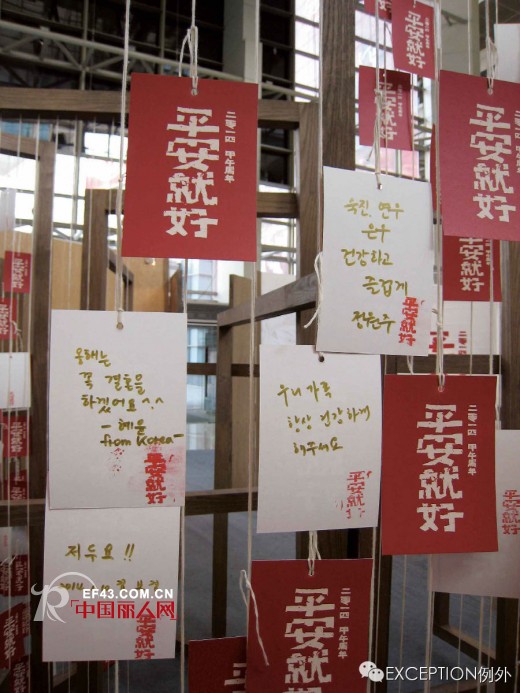 平安就好
二零一四 甲午周年
평안就好
平安就好
平安就好
二零一四 甲午周年
욱진, 연우
은우
건강하고
즐겁게
平安就好
올해는
꼭 결혼을
하겠어요^^
- 혜윤
from Korea-
平安就好
우리 가족
항상 건강하게
해주세요
平安就好
平安就好
二零一四 甲午周年
저두요!!
2014
平安就好
平安就好
二零一四 甲午周年
EF43.COM.CN
中国丽人网
EXCEPTION例外